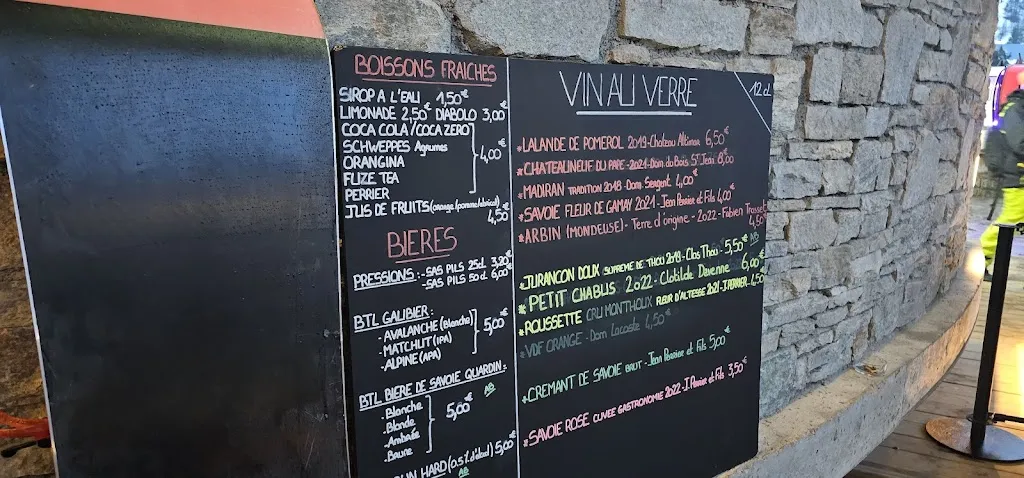 BOISSONS FRAICHES
SIROP A L'EAU 1,50€
LIMONADE 2,50€ DIABOLO 3,00€
COCA COLA/COCA ZERO
SCHWEPPES Agrumes
ORANGINA
FUZE TEA
PERRIER
4,00€
JUS DE FRUITS (orange/pomme/abricot)
4,50€
BIERES
PRESSIONS: -SAS PILS 25cl 3,20€
-SAS PILS 50cl 6,00€
BTL GALIBIER:
-AVALANCHE (Blanche)
-MATCHUT (IPA)
-ALPINE (APA)
5,00€
BTL BIERE DE SAVOIE QUARDIN:
AB
-Blanche
-Blonde
-Ambrée
-Brune
5,00€
HARD (0.5% d'alcool) 5,00€
AB
VIN AU VERRE
12 cl
*LALANDE DE POMEROL 2019-Chateau 6,50€
*CHATEAUNEUF DU PAPE-2021-Dom. du Bois St Jean 8,00€
*MADIRAN TRADITION 2018-Dom. Sergent 4,00€
*SAVOIE FLEUR DE GAMAY 2021-Jean Perrier et Fils 4,00€
*ARBIN (MONDEUSE)-Terre d'origine-2022-Fabien Trosset
4,50€
*JURANCON DOUX SUPREME DE THOU 2019-Clos Thou-5,50€ AB
*PETIT CHABLIS 2022-Clotilde Davenne 6,00€
*ROUSSETTE CRU MONTHOUX FLEUR D'ALTESSE 2021-J.PERRIER-4,50€
*VDF ORANGE-Dom Lacoste 4,50€
*CREMANT DE SAVOIE BRUT-Jean Perrier et Fils 5,00€
*SAVOIE ROSE CUVEE GASTRONOMIE 2022-J.Perrier et Fils 3,50€